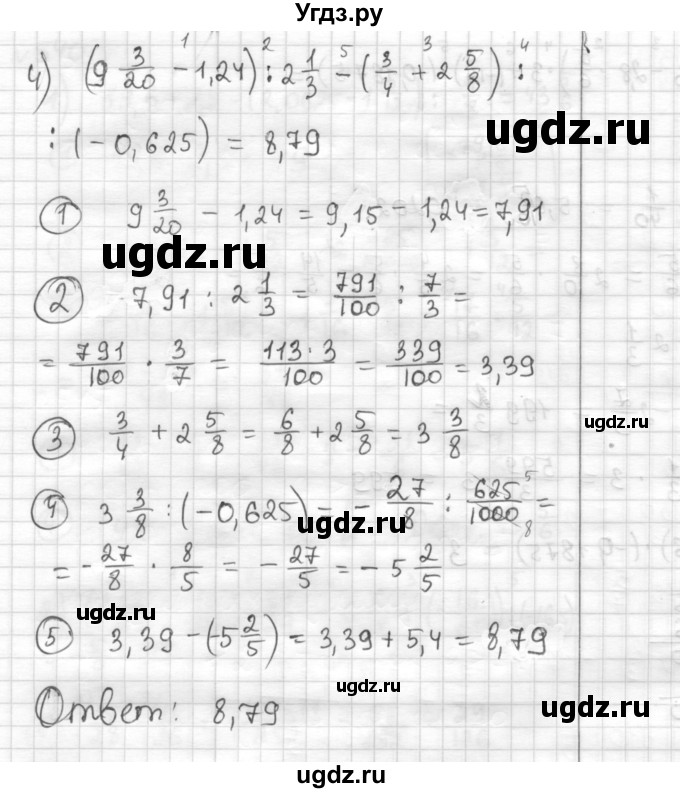 Угдз.ру
4) (9 3/20 - 1,24) : 2 1/3 - (3/4 + 2 5/8) :
1 2 5 3 4
: (-0,625) = 8,79
ugdz.ru
① 9 3/20 - 1,24 = 9,15 - 1,24 = 7,91
ugdz.ru
ugdz.ru
② 7,91 : 2 1/3 = 791/100 : 7/3 =
= 791/100 · 3/7 = 113·3/100 = 339/100 = 3,39
ugdz.ru
③ 3/4 + 2 5/8 = 6/8 + 2 5/8 = 3 3/8
ugdz.ru
④ 3 3/8 : (-0,625) = - 27/8 : 625/1000 =
5 8
ugdz.ru
= - 27/8 · 8/5 = - 27/5 = - 5 2/5
ugdz.ru
⑤ 3,39 - (-5 2/5) = 3,39 + 5,4 = 8,79
ugdz.ru
Ответ: 8,79
ugdz.ru
ugdz.ru